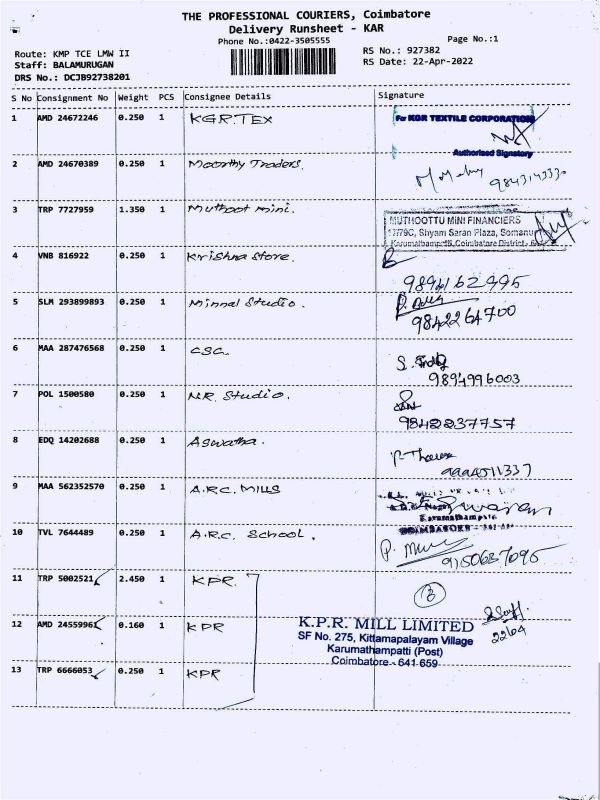 THE PROFESSIONAL COURIERS, Coimbatore
Delivery Runsheet - KAR
Phone No.:0422-3505555
Page No.:1
Route: KMP TCE LMW II
RS No.: 927382
Staff: BALAMURUGAN
RS Date: 22-Apr-2022
DRS No.: DCJB92738201
S No Consignment No Weight PCS Consignee Details Signature
1 AMD 24672246 0.250 1 KGR.TEX
For KGR TEXTILE CORPORATION
Authorised Signatory
2 AMD 24670389 0.250 1 Moorthy Traders.
9843143330
3 TRP 7727959 1.350 1 Muthoot mini.
MUTHOOTTU MINI FINANCIERS
17/79C, Shyam Saran Plaza, Somanur
Karumathampatti, Coimbatore District
4 VNB 816922 0.250 1 Krishna Store.
5 SLM 293899893 0.250 1 Minnal Studio.
9842264700
6 MAA 287476568 0.250 1 CSC.
9894996003
7 POL 1500580 0.250 1 N.R. Studio.
9842237757
8 EDQ 14202688 0.250 1 Aswatha.
9 MAA 562352570 0.250 1 A.R.C. MILLS
Karumathampatti
COIMBATORE
10 TVL 7644489 0.250 1 A.R.C. School.
9150637095
11 TRP 5002521 2.450 1 KPR.
3
12 AMD 24559961 0.160 1 KPR
K.P.R. MILL LIMITED
SF No. 275, Kittamapalayam Village
Karumathampatti (Post)
Coimbatore - 641 659
22/04
13 TRP 6666053 0.250 1 KPR